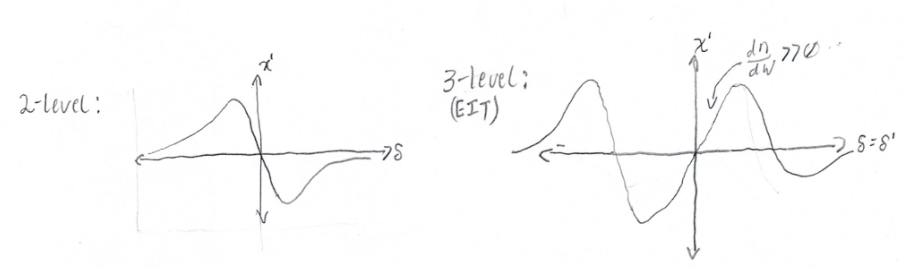 2-level:
χ'
δ
3-level:
(EIT)
χ'
dn/dω >> 0
δ=δ'